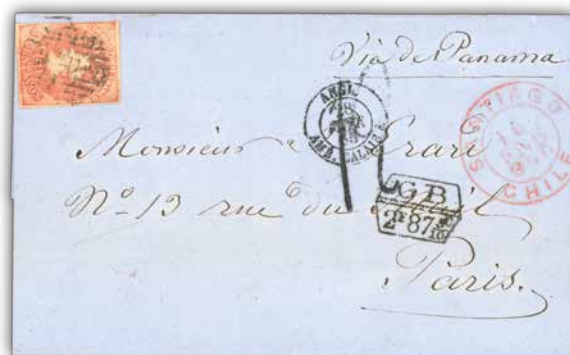 Via de Panama
ANGL.
AMB. CALAIS
SANTIAGO
CHILE
Monsieur Erard
Nº 13 rue du Mail
GB
2F 87 5/10
Paris.